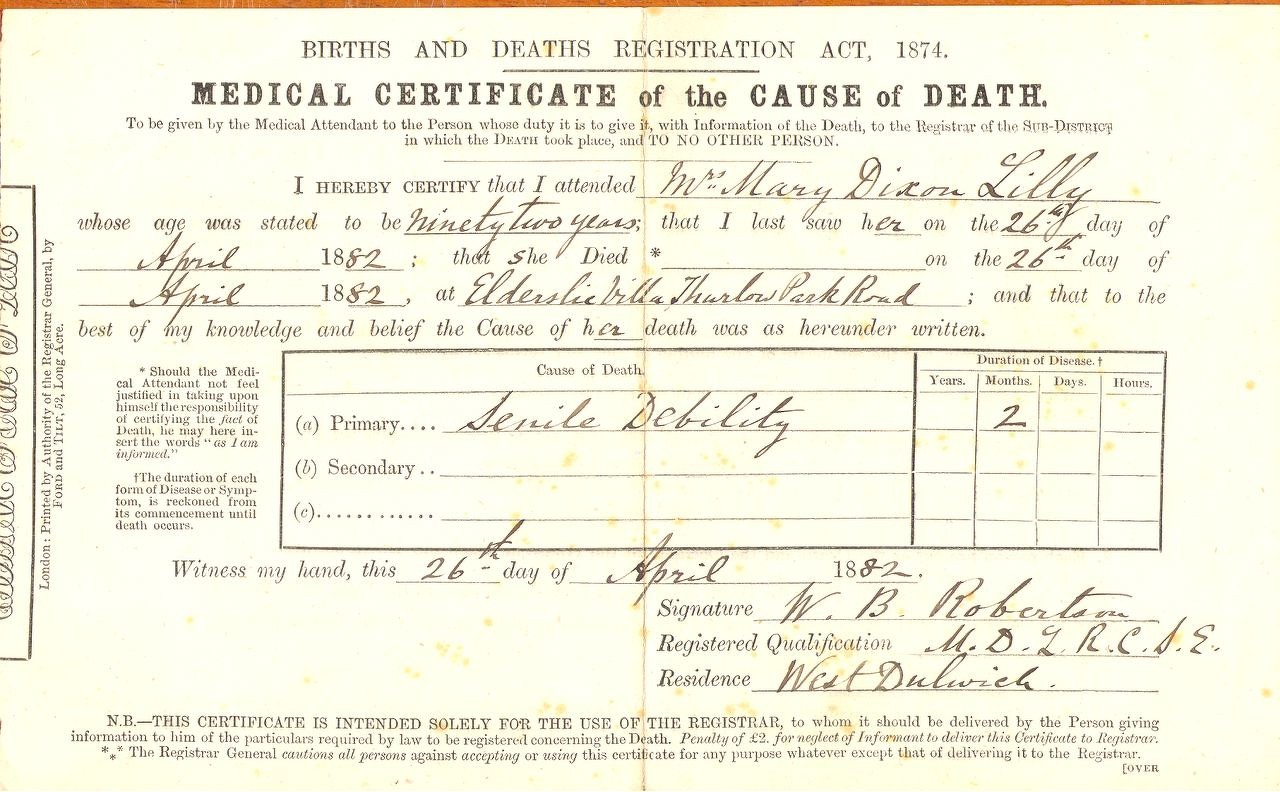 BIRTHS AND DEATHS REGISTRATION ACT, 1874.
MEDICAL CERTIFICATE of the CAUSE of DEATH.
To be given by the Medical Attendant to the Person whose duty it is to give it, with Information of the Death, to the Registrar of the SUB-DISTRICT
in which the DEATH took place, and TO NO OTHER PERSON.
I HEREBY CERTIFY that I attended Mrs Mary Dixon Lilly
whose age was stated to be ninety two years; that I last saw her on the 26th day of
April 1882 ; that she Died * on the 26th day of
April 1882, at Elderslie Villa Thurlow Park Road ; and that to the
best of my knowledge and belief the Cause of her death was as hereunder written.
* Should the Medi-
cal Attendant not feel
justified in taking upon
himself the responsibility
of certifying the fact of
Death, he may here in-
sert the words "as I am
informed."
†The duration of each
form of Disease or Symp-
tom, is reckoned from
its commencement until
death occurs.
Cause of Death.
Duration of Disease. †
Years. Months. Days. Hours.
(a) Primary.... Senile Debility 2
(b) Secondary ..
(c)............
Witness my hand, this 26th day of April 1882.
Signature W. B. Robertson
Registered Qualification M.D. L.R.C.S.E.
Residence West Dulwich.
N.B.—THIS CERTIFICATE IS INTENDED SOLELY FOR THE USE OF THE REGISTRAR, to whom it should be delivered by the Person giving
information to him of the particulars required by law to be registered concerning the Death. Penalty of £2. for neglect of Informant to deliver this Certificate to Registrar.
*** The Registrar General cautions all persons against accepting or using this certificate for any purpose whatever except that of delivering it to the Registrar.
[OVER
London: Printed by Authority of the Registrar General, by
FORD and TILT, 52, Long Acre.